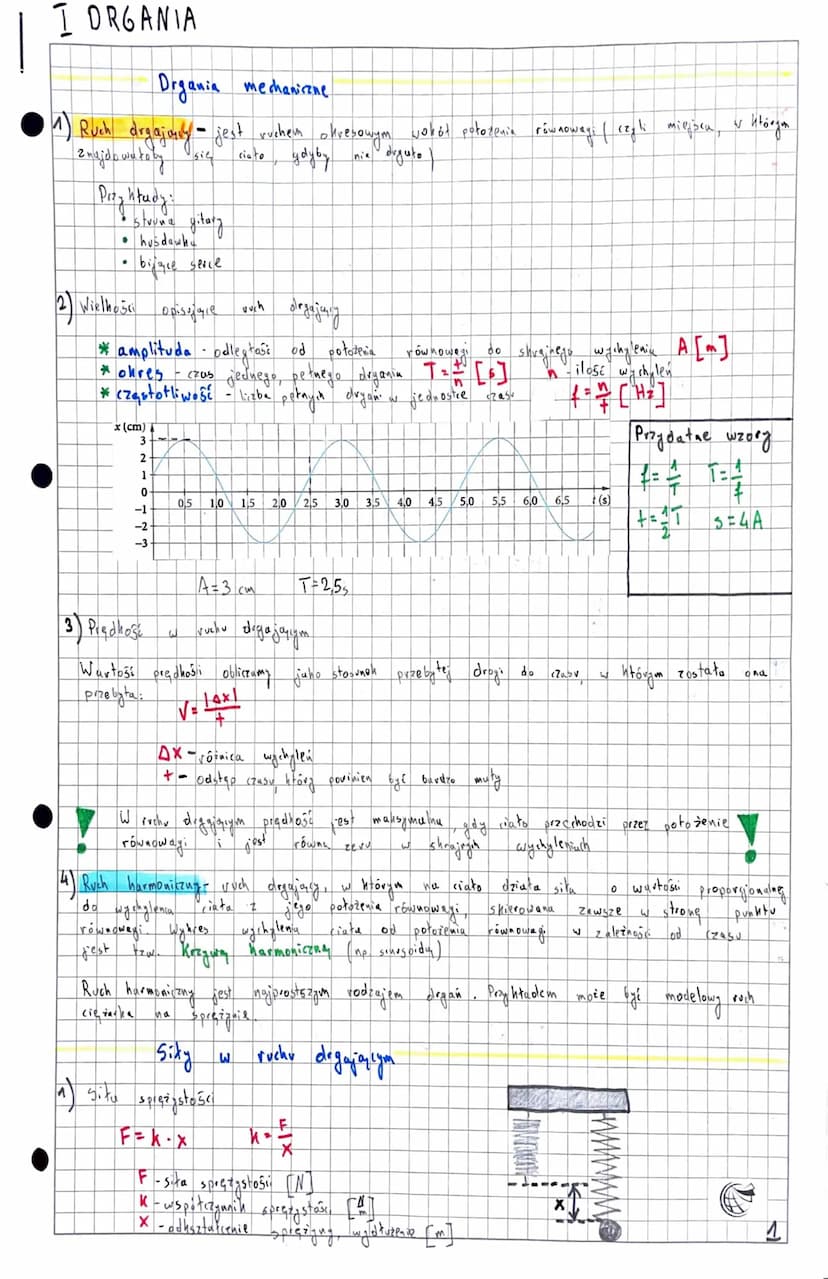 I DRGANIA
Drgania mechaniczne
1) Ruch drgający - jest ruchem okresowym wokół położenia równowagi (czyli miejsca, w którym
znajdowałoby się ciało, gdyby nie drgało)
Przykłady:
• struna gitary
• huśdawka
• bijące serce
2) Wielkości opisujące ruch drgający
* amplituda - odległość od położenia równowagi do skrajnego wychylenia A [m]
* okres - czas jednego, pełnego drgania T = t/n [s] n - ilość wychyleń
* częstotliwość - liczba pełnych drgań w jednostce czasu f = n/t [Hz]
x (cm)
3
2
1
0
-1
-2
-3
0,5 1,0 1,5 2,0 2,5 3,0 3,5 4,0 4,5 5,0 5,5 6,0 6,5 t (s)
Przydatne wzory
f = 1/T T = 1/f
t = 1/2 T s = 4A
A = 3 cm T = 2,5s
3) Prędkość w ruchu drgającym
Wartość prędkości obliczamy jako stosunek przebytej drogi do czasu, w którym została ona
przebyta:
V = |Δx|/t
Δx - różnica wychyleń
t - odstęp czasu, który powinien być bardzo mały
! W ruchu drgającym prędkość jest maksymalna, gdy ciało przechodzi przez położenie !
równowagi i jest równa zeru w skrajnych wychyleniach
4) Ruch harmoniczny - ruch drgający, w którym na ciało działa siła o wartości proporcjonalnej
do wychylenia ciała z jego położenia równowagi, skierowana zawsze w stronę punktu
równowagi. Wykres wychylenia ciała od położenia równowagi w zależności od czasu
jest tzw. krzywą harmoniczną (np sinusoidą)
Ruch harmoniczny jest najprostszym rodzajem drgań. Przykładem może być modelowy ruch
ciężarka na sprężynie.
Siły w ruchu drgającym
1) Siła sprężystości
F = k · x k = F/x
F - siła sprężystości [N]
k - współczynnik sprężystości [N/m]
x - odkształcenie sprężyny, wydłużenie [m]
x
1